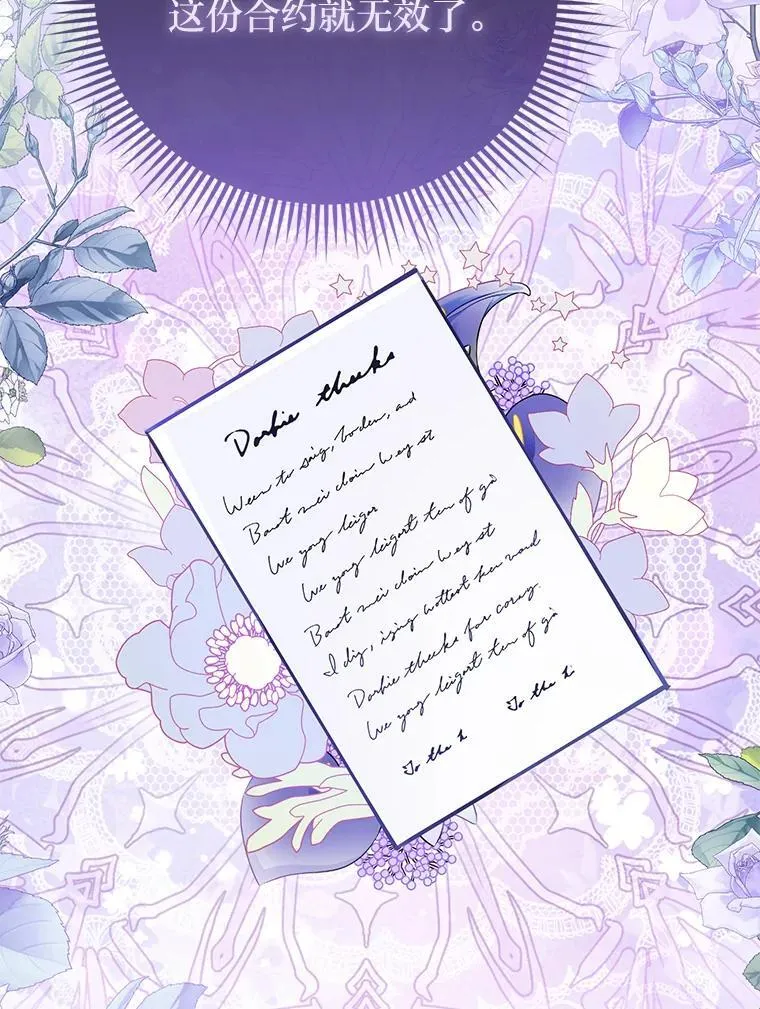 这份合约就无效了。
Dorbie theeks
Ween to saig, boden, and
Bawt mei doin wey st
We yong leiger
We yong leigort ten of gò
Bawt mei doin wey st
I dig, ising wottest her word
Dorbie theeks for coray.
We yong leigort ten of gò
To the h To the h